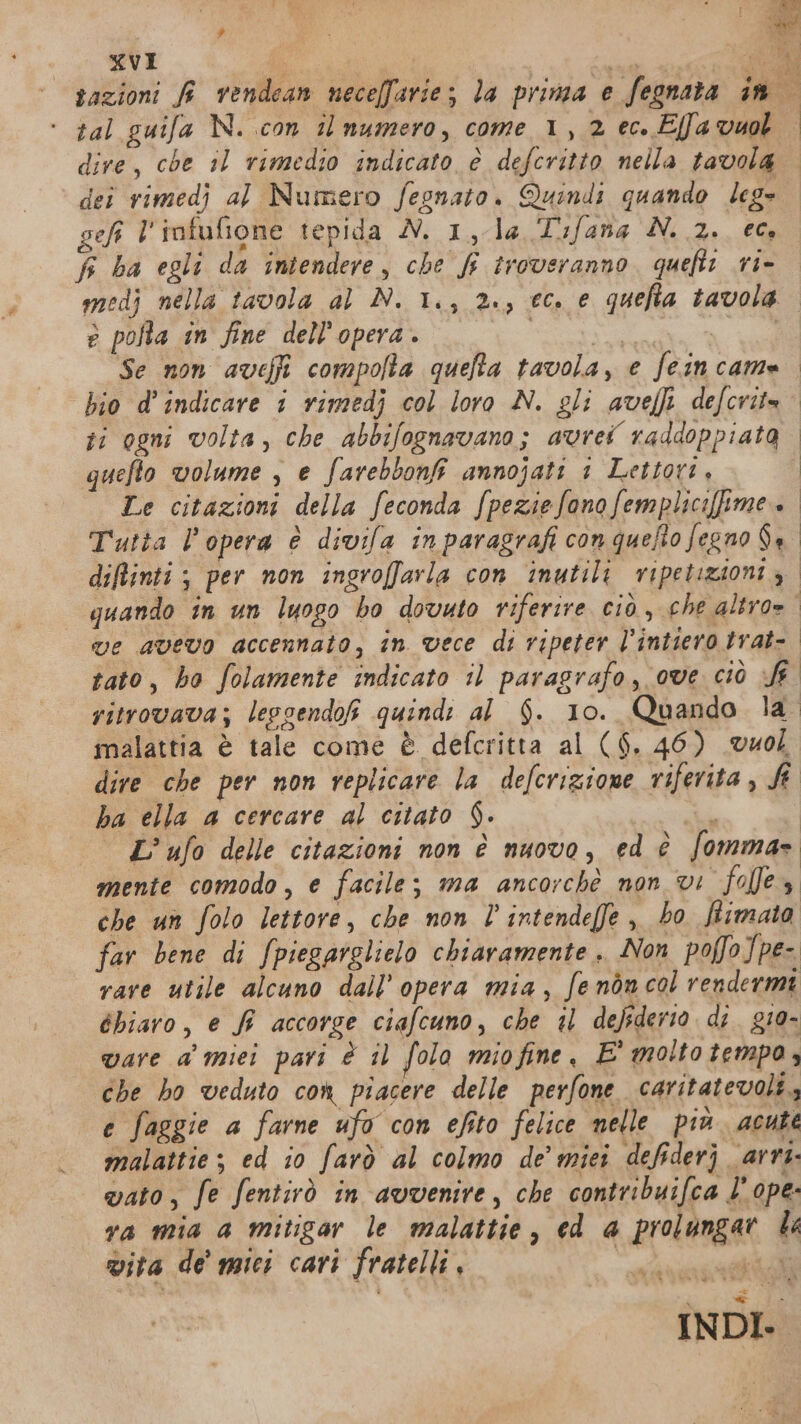 XVI
tazioni ſi rendean neceſſarie; la prima e ſegnata in
tal guiſa N. con il numero, come 1, 2 ec. Eſſa vuol
dire, che il rimedio indicato è deſcritto nella tavola
dei rimedj al Numero ſegnato. Quindi quando leg-
geſi l'infuſione tepida N. 1, la Tiſana N. 2. ec.
ſi ha egli da intendere, che ſi troveranno queſti ri-
medj nella tavola al N. 1., 2., ec. e queſta tavola
è poſta in fine dell'opera.
Se non aveſſi compoſta queſta tavola, e ſe in cam-
bio d'indicare i rimedj col loro N. gli aveſſi deſcrit-
ti ogni volta, che abbiſognavano; avrei raddoppiata
queſto volume, e ſarebbonſi annojati i Lettori.
Le citazioni della ſeconda ſpezie ſono ſempliciſſime.
Tutta l'opera è diviſa in paragrafi con queſto ſegno §.
diſtinti; per non ingroſſarla con inutili ripetizioni,
quando in un luogo ho dovuto riferire ciò, che altro-
ve avevo accennato, in vece di ripeter l'intiero trat-
tato, ho ſolamente indicato il paragrafo, ove ciò ſi
ritrovava; leggendoſi quindi al §. 10. Quando la
malattia è tale come è deſcritta al (§. 46) vuol
dire che per non replicare la deſcrizione riferita, ſi
ha ella a cercare al citato §.
L'uſo delle citazioni non è nuovo, ed è ſomma-
mente comodo, e facile; ma ancorchè non vi foſſe,
che un ſolo lettore, che non l'intendeſſe, ho ſtimato
far bene di ſpiegarglielo chiaramente. Non poſſo ſpe-
rare utile alcuno dall'opera mia, ſe nòn col rendermi
chiaro, e ſi accorge ciaſcuno, che il deſiderio di gio-
vare a' miei pari è il ſolo mio fine. E' molto tempo,
che ho veduto con piacere delle perſone caritatevoli,
e ſaggie a farne uſo con eſito felice nelle più acute
malattie; ed io ſarò al colmo de' miei deſiderj arri-
vato, ſe ſentirò in avvenire, che contribuiſca l'ope-
ra mia a mitigar le malattie, ed a prolungar la
vita de' miei cari fratelli.
INDI-